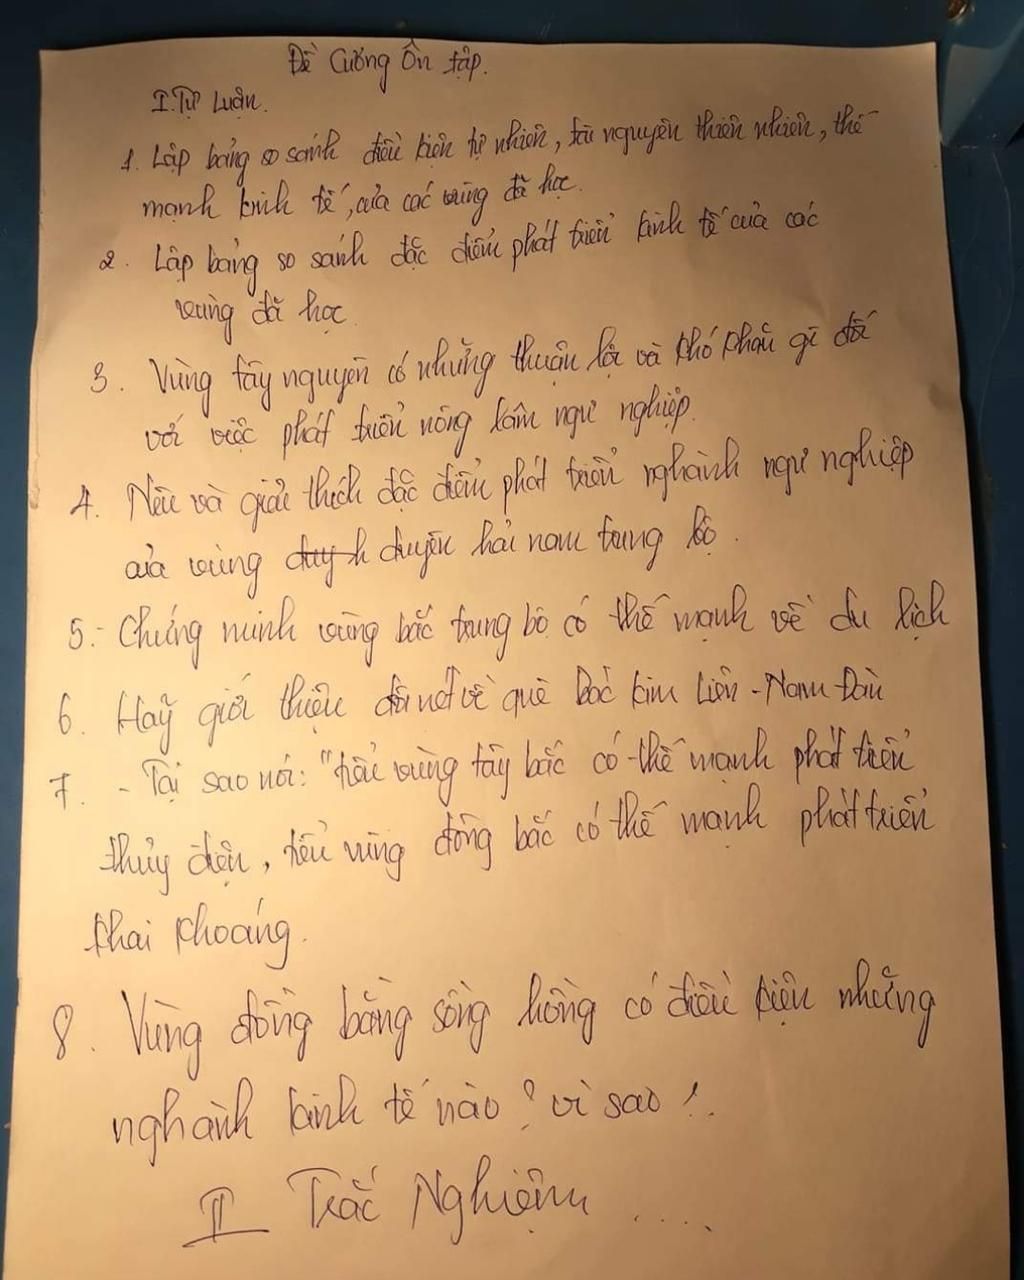 Đề Cương Ôn tập.
I. Tự Luận.
1. Lập bảng so sánh điều kiện tự nhiên, tài nguyên thiên nhiên, thế
mạnh kinh tế, của các vùng đã học.
2. Lập bảng so sánh đặc điểm phát triển kinh tế của các
vùng đã học
3. Vùng tây nguyên có những thuận lợi và khó khăn gì đối
với việc phát triển nông lâm ngư nghiệp.
4. Nêu và giải thích đặc điểm phát triển nghành ngư nghiệp
của vùng duyên hải nam trung bộ.
5.- Chứng minh vùng bắc trung bộ có thế mạnh về du lịch
6. Hãy giới thiệu đôi nét về quê Bác kim Liên - Nam Đàn
7. - Tại sao nói: "tiểu vùng tây bắc có thế mạnh phát triển
thủy điện, tiểu vùng đông bắc có thế mạnh phát triển
khai khoáng.
8. Vùng đồng bằng sông hồng có điều kiện những
nghành kinh tế nào? vì sao!.
II Trắc Nghiệm ....